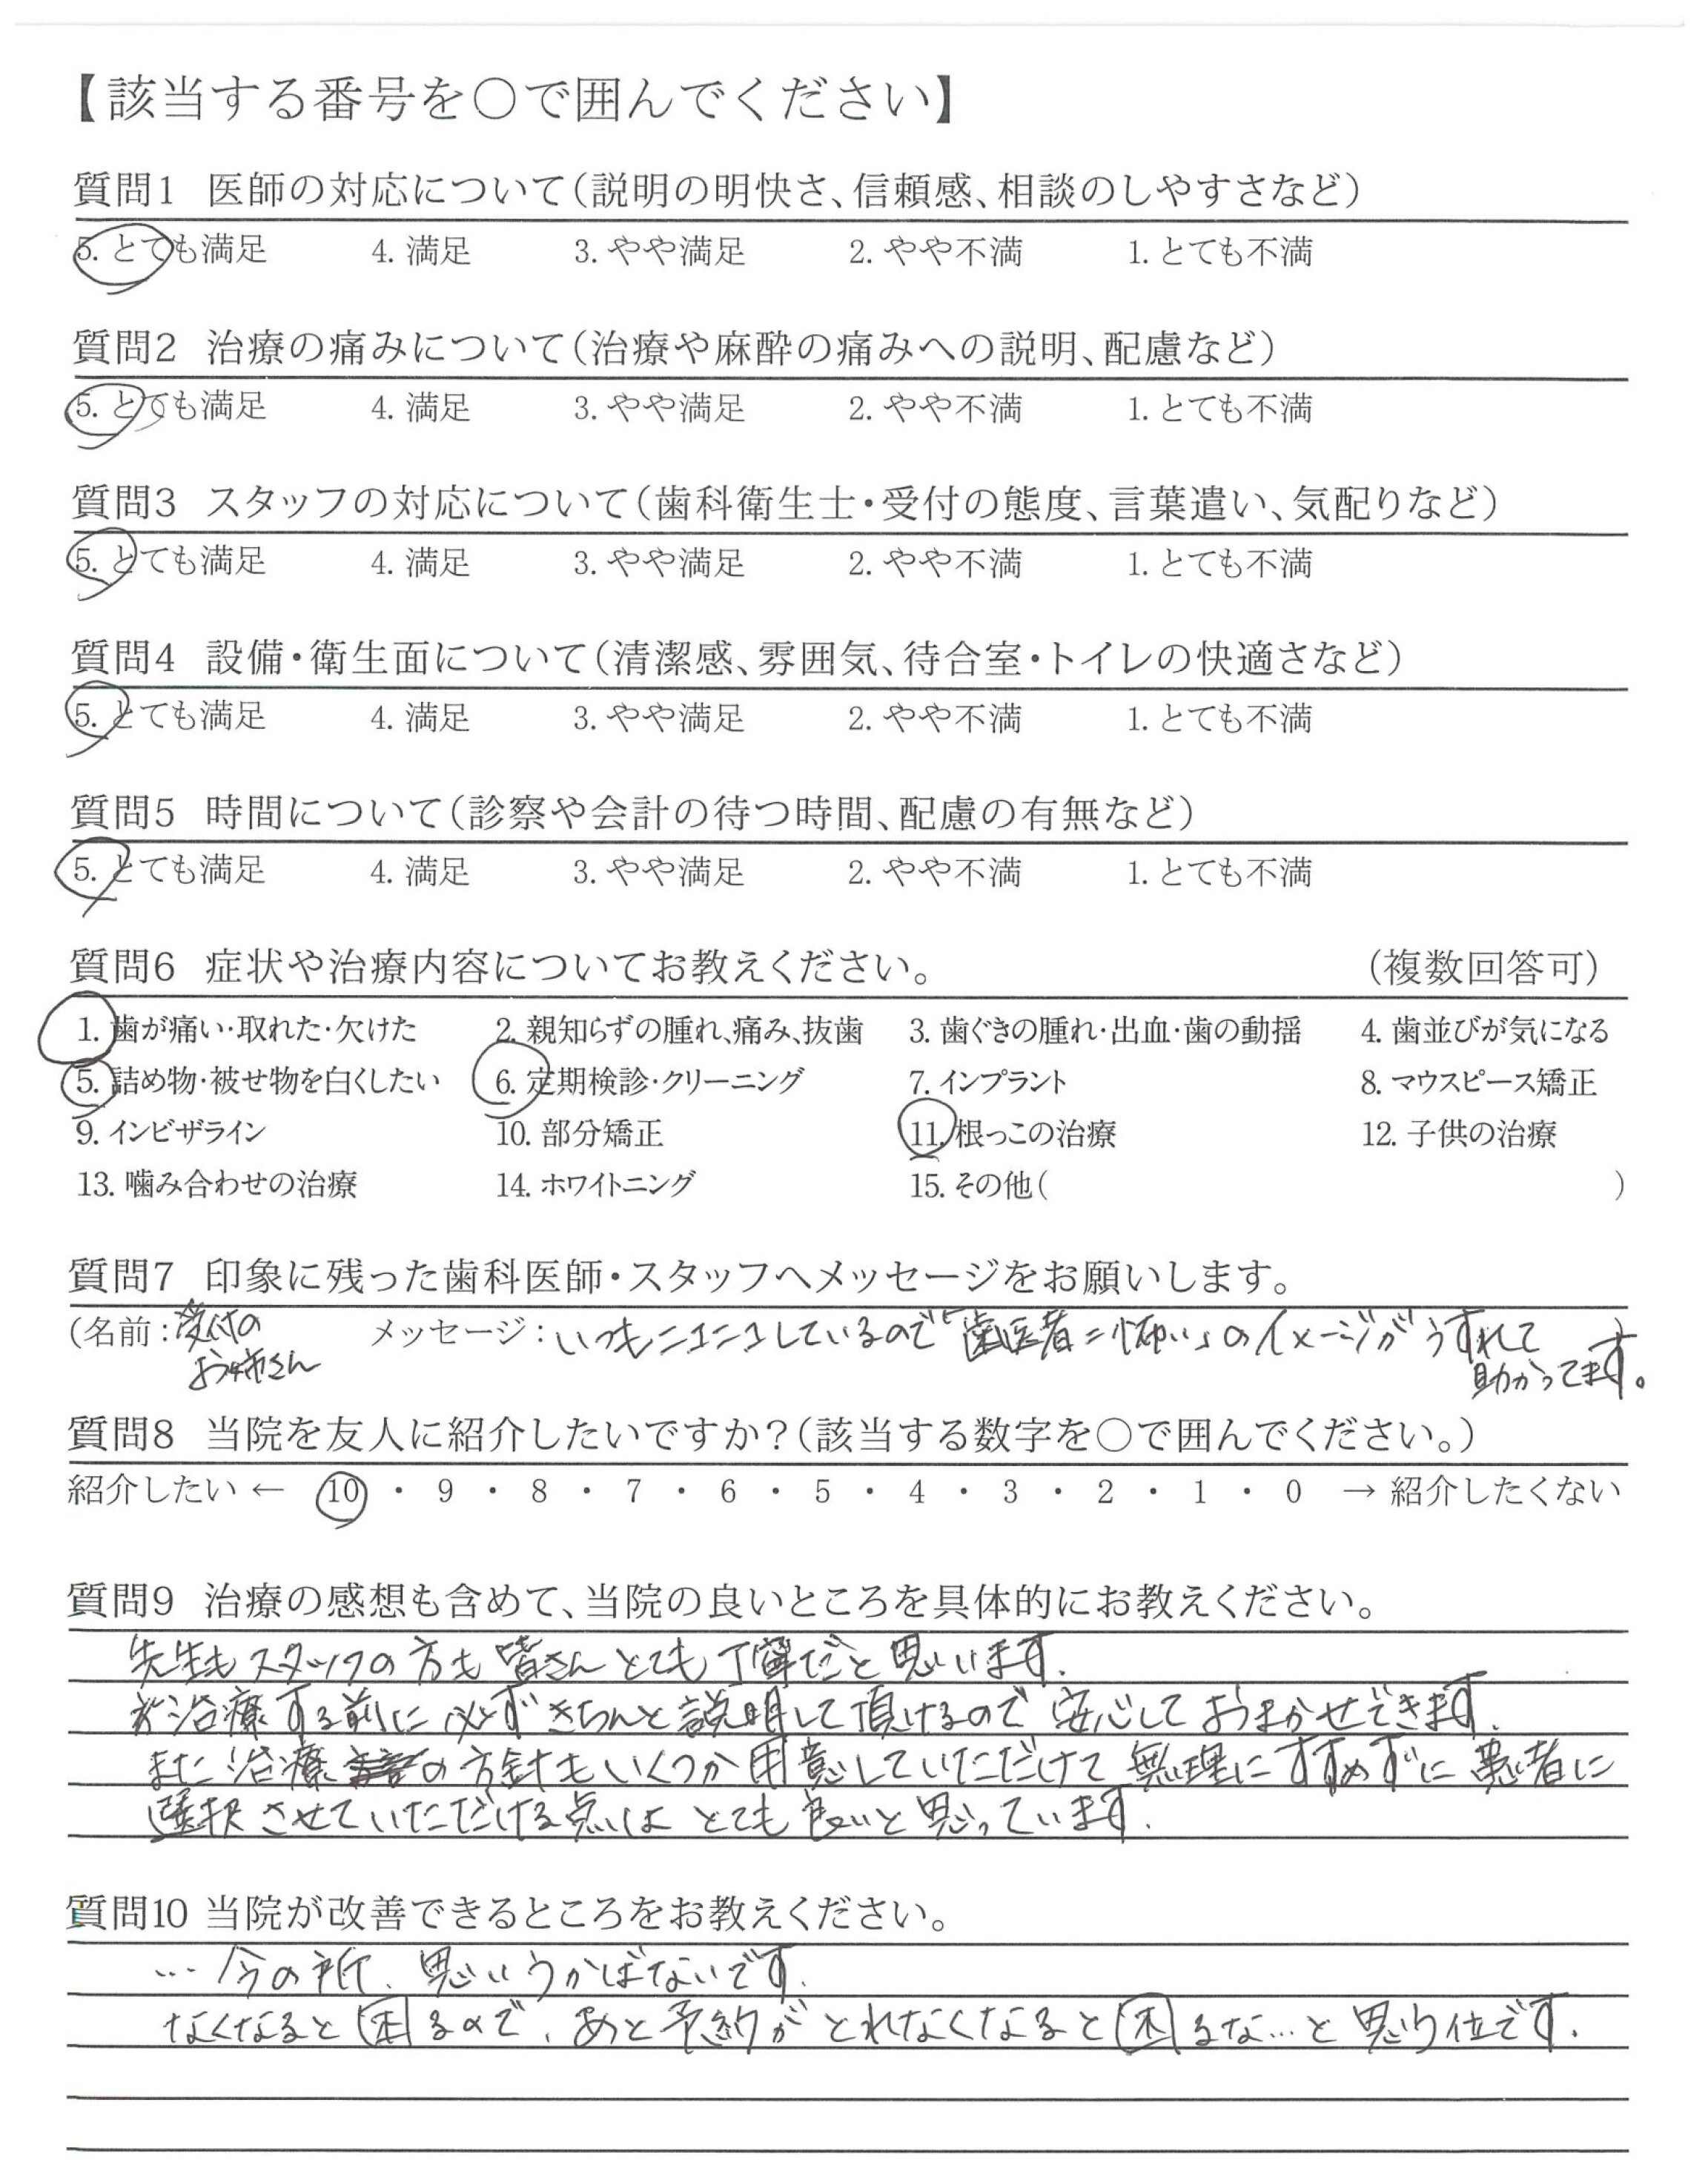 【該当する番号を○で囲んでください】
質問1 医師の対応について（説明の明快さ、信頼感、相談のしやすさなど）
5. とても満足 4. 満足 3. やや満足 2. やや不満 1. とても不満
質問2 治療の痛みについて（治療や麻酔の痛みへの説明、配慮など）
5. とても満足 4. 満足 3. やや満足 2. やや不満 1. とても不満
質問3 スタッフの対応について（歯科衛生士・受付の態度、言葉遣い、気配りなど）
5. とても満足 4. 満足 3. やや満足 2. やや不満 1. とても不満
質問4 設備・衛生面について（清潔感、雰囲気、待合室・トイレの快適さなど）
5. とても満足 4. 満足 3. やや満足 2. やや不満 1. とても不満
質問5 時間について（診察や会計の待つ時間、配慮の有無など）
5. とても満足 4. 満足 3. やや満足 2. やや不満 1. とても不満
質問6 症状や治療内容についてお教えください。 （複数回答可）
1. 歯が痛い・取れた・欠けた 2. 親知らずの腫れ、痛み、抜歯 3. 歯ぐきの腫れ・出血・歯の動揺 4. 歯並びが気になる
5. 詰め物・被せ物を白くしたい 6. 定期検診・クリーニング 7. インプラント 8. マウスピース矯正
9. インビザライン 10. 部分矯正 11. 根っこの治療 12. 子供の治療
13. 噛み合わせの治療 14. ホワイトニング 15. その他（ ）
質問7 印象に残った歯科医師・スタッフへメッセージをお願いします。
（名前：受付の メッセージ：いつもニコニコしているので「歯医者＝怖い」のイメージがうすれて
お姉さん 助かってます。
質問8 当院を友人に紹介したいですか？（該当する数字を○で囲んでください。）
紹介したい ← 10 ・ 9 ・ 8 ・ 7 ・ 6 ・ 5 ・ 4 ・ 3 ・ 2 ・ 1 ・ 0 → 紹介したくない
質問9 治療の感想も含めて、当院の良いところを具体的にお教えください。
先生もスタッフの方も皆さんとても丁寧だと思います.
治療する前に必ずきちんと説明して頂けるので安心しておまかせできます.
また治療の方針もいくつか用意していただけて無理にすすめずに患者に
選択させていただける点はとても良いと思っています.
質問10 当院が改善できるところをお教えください。
…今の所、思いうかばないです.
なくなると困るので、あと予約がとれなくなると困るな…と思う位です.